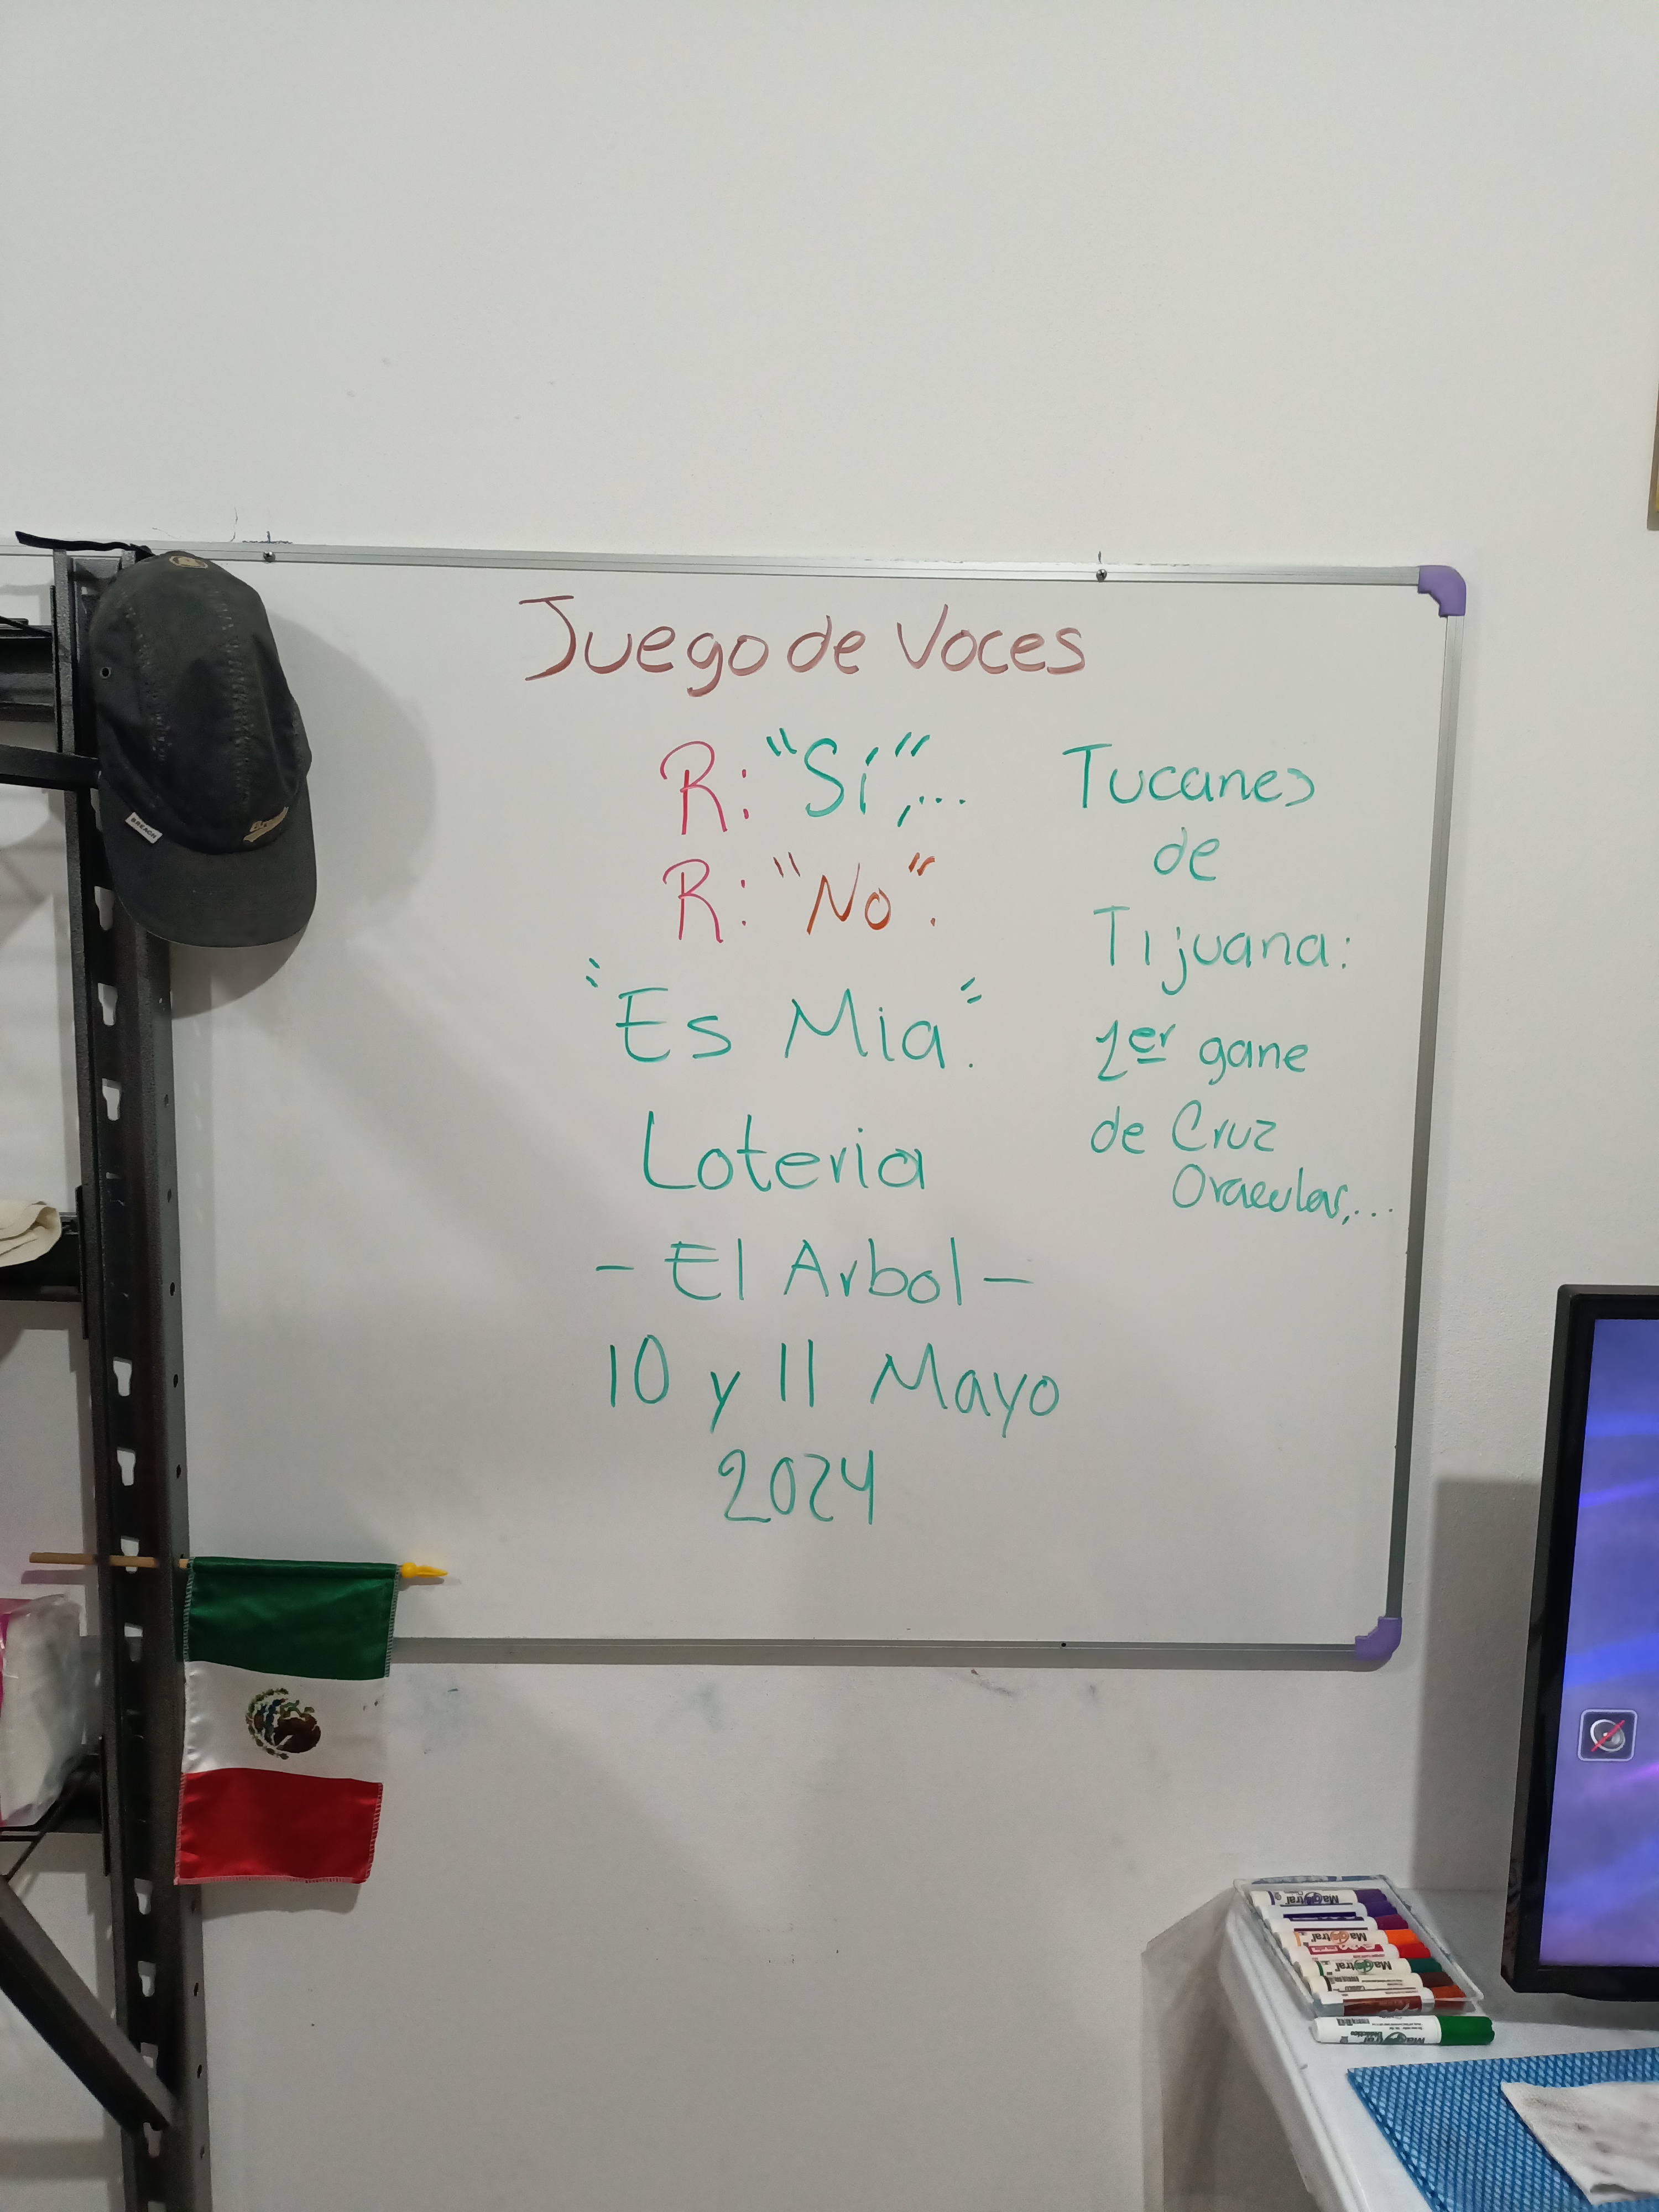 Juego de Voces
R: "Sí",...
R: "No".
"Es Mia."
Loteria
- El Arbol -
10 y 11 Mayo
2024
Tucanes
de
Tijuana:
1er gane
de Cruz
Oracular,...
BREACH
Magistral
Magistral
Magistral
Magistral